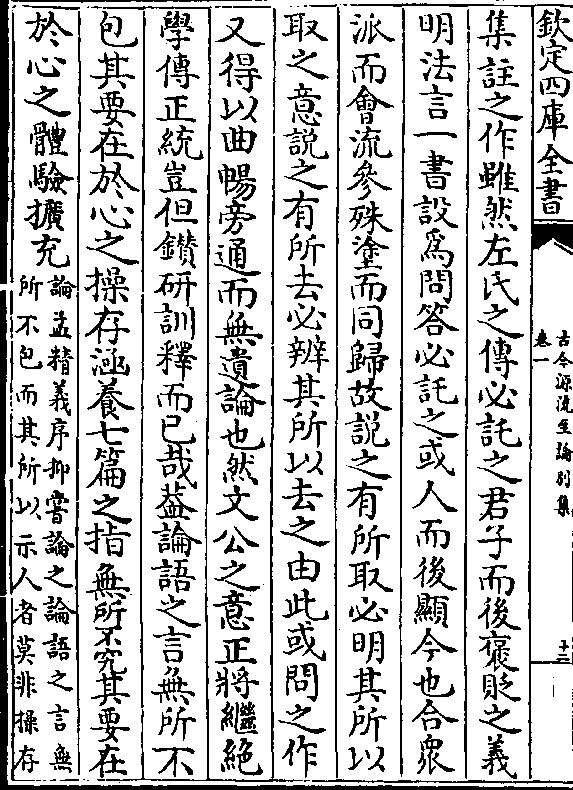 欽定四庫全書
古今源流至論別集
卷一
十三
集註之作雖然左氏之傳必託之君子而後褒貶之義
明法言一書設爲問答必託之或人而後顯今也合衆
派而會流參殊塗而同歸故説之有所取必明其所以
取之意説之有所去必辨其所以去之由此或問之作
又得以曲暢旁通而無遺論也然文公之意正將繼絶
學傳正統豈但鑚研訓釋而已哉葢論語之言無所不
包其要在於心之操存涵養七篇之指無所不究其要在
於心之體驗擴充
論孟精義序抑嘗論之論語之言無
所不包而其所以示人者莫非操存